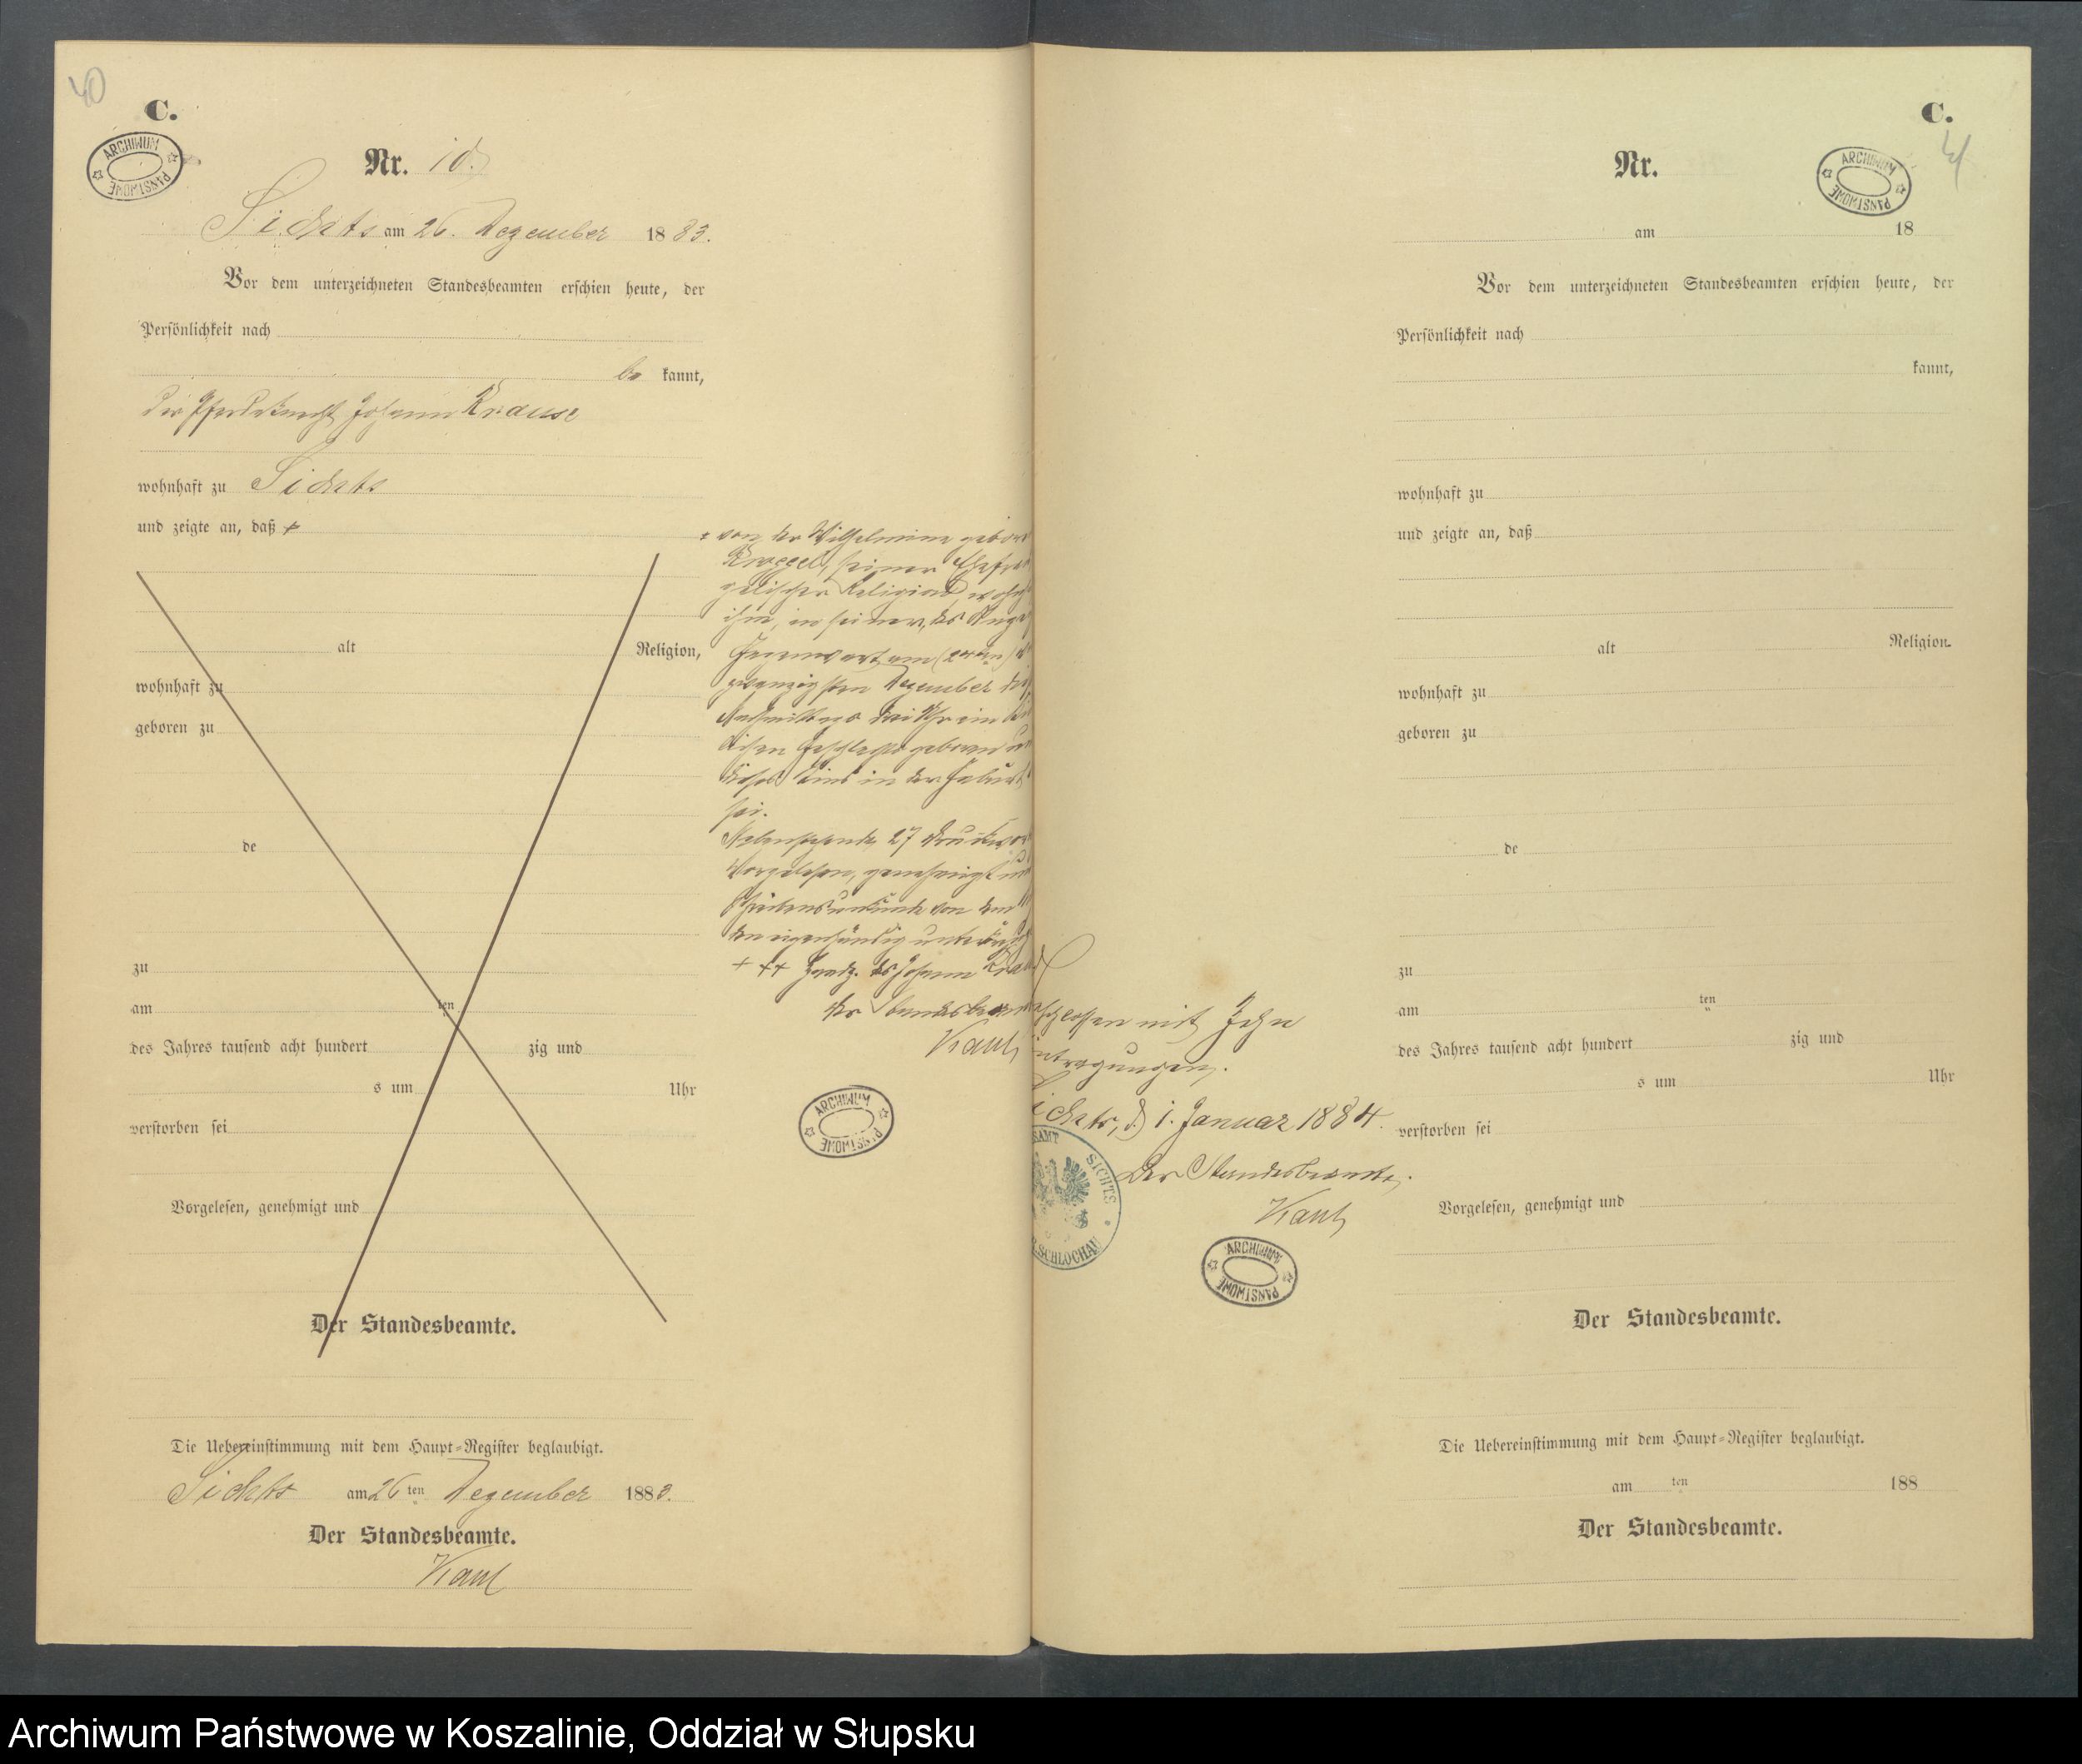 40
C.
ARCHIWUM PAŃSTWOWE
Nr. 10.
Sichts am 26. Dezember 1883.
Vor dem unterzeichneten Standesbeamten erschien heute, der
Persönlichkeit nach
be kannt,
der Pferdeknecht Johann Krause
wohnhaft zu Sichts
und zeigte an, daß +
alt Religion,
wohnhaft zu
geboren zu
de
zu
am ten
des Jahres tausend acht hundert zig und
s um Uhr
verstorben sei
Vorgelesen, genehmigt und
Der Standesbeamte.
Die Uebereinstimmung mit dem Haupt-Register beglaubigt.
Sichts am 26 ten Dezember 1883.
Der Standesbeamte.
Kaul
+ von der Wilhelmine gebor
seiner Ehefrau
gelischer Religion, wohnh
ihm, in seiner, des Anze
Gegenwart am
zwanzigsten Dezember die
Nachmittags drei Uhr ein
lichen Geschlechts geboren
dieses Kind in der Geburt
sei.
Nebenstehende 27 Druckwor
Vorgelesen, genehmigt
von dem
eigenhändig
+++ Handz. des Johann Krau
der Standesbeam
Kaul
ARCHIWUM PAŃSTWOWE
schlossen mit Zehn
ntragungen.
ichts, d. 1. Januar 1884.
Der Standesbeamte.
Kaul
SAMT SICHTS
R. SCHLOCHAU
ARCHIWUM PAŃSTWOWE
C.
41
Nr.
ARCHIWUM PAŃSTWOWE
am 18
Vor dem unterzeichneten Standesbeamten erschien heute, der
Persönlichkeit nach
kannt,
wohnhaft zu
und zeigte an, daß
alt Religion.
wohnhaft zu
geboren zu
de
zu
am ten
des Jahres tausend acht hundert zig und
s um Uhr
verstorben sei
Vorgelesen, genehmigt und
Der Standesbeamte.
Die Uebereinstimmung mit dem Haupt-Register beglaubigt.
am ten 188
Der Standesbeamte.
Archiwum Państwowe w Koszalinie, Oddział w Słupsku